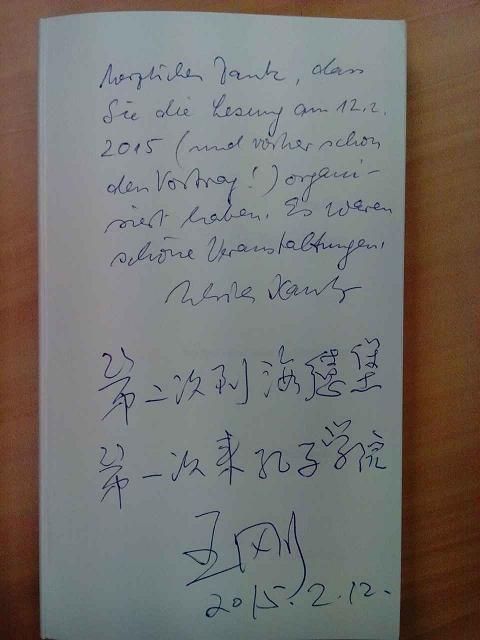 herzlichen Dank, dass
Sie die Lesung am 12.2.
2015 (und vorher schon
den Vortrag!) organi-
siert haben. Es waren
schöne Veranstaltungen.
Ulrich Kautz
第二次到海德堡
第一次来孔子学院
王刚
2015.2.12.